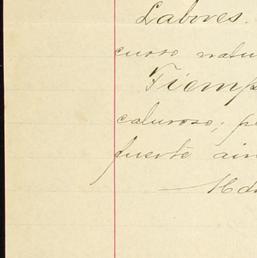 Labores.
curso natu
Tiemp
caluroso; p
fuerte ain